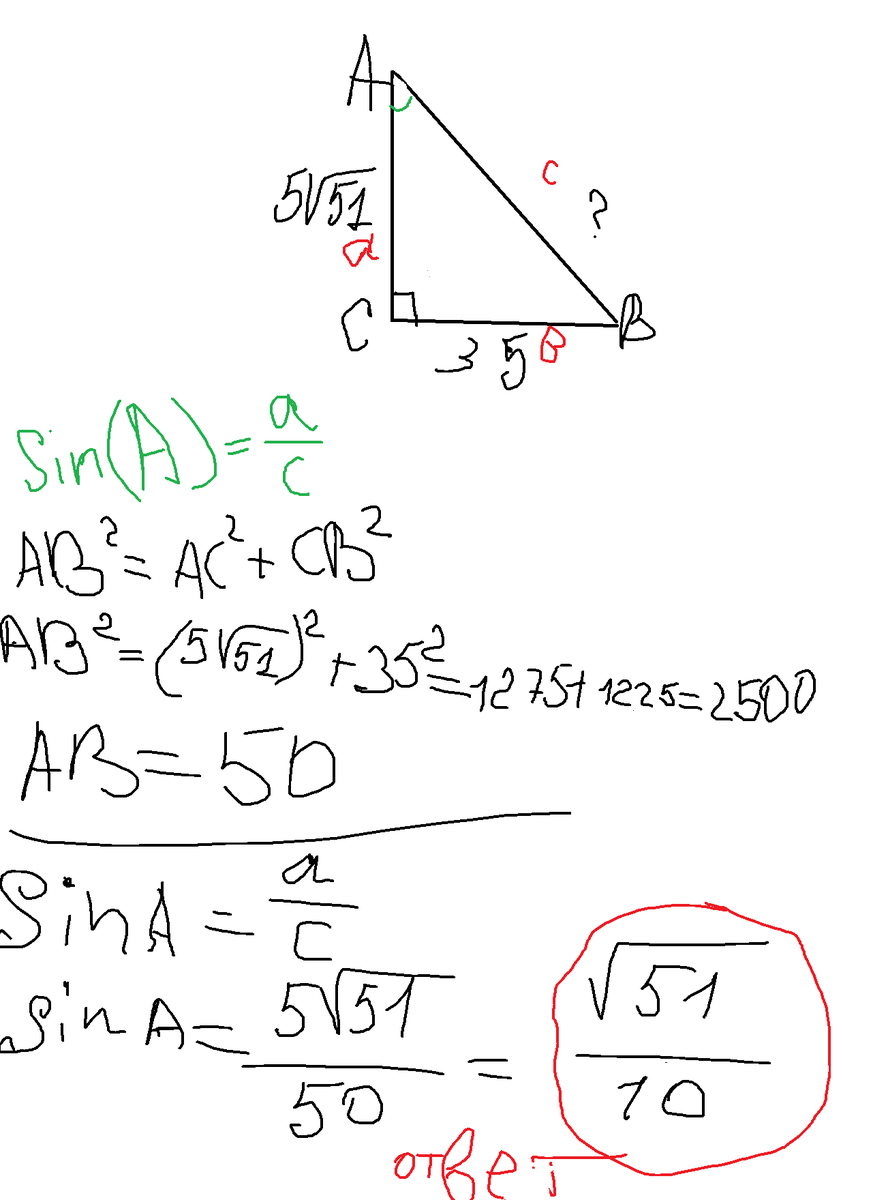 A
c
5√51
?
a
C
B
3 5 в
sin(A) = a/c
AB² = AC² + CB²
AB² = (5√51)² + 35² = 1275 + 1225 = 2500
AB = 50
sin A = a/c
sin A = 5√51/50 = √51/10
ответ